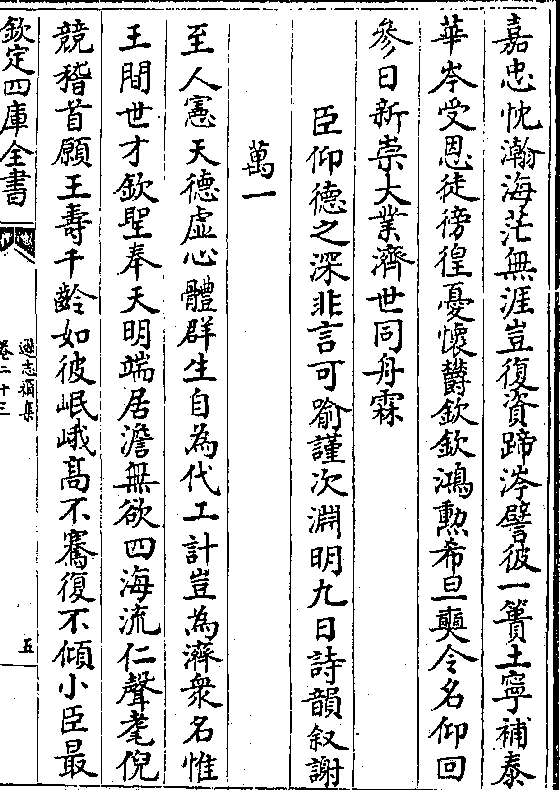 嘉忠忱瀚海茫無涯豈復資蹄涔譬彼一簣土寧補泰
華岑受恩徒徬徨憂懷欝欽欽鴻勲希旦奭令名仰回
參日新崇大業濟世同舟霖
臣仰德之深非言可喻謹次淵明九日詩韻叙謝
萬一
至人憲天德虛心體群生自為代工計豈為濟衆名惟
王間世才欽聖奉天明端居澹無欲四海流仁聲耄倪
競稽首願王壽千齡如彼岷峨高不騫復不傾小臣最
欽定四庫全書
遜志齋集
卷二十三
五